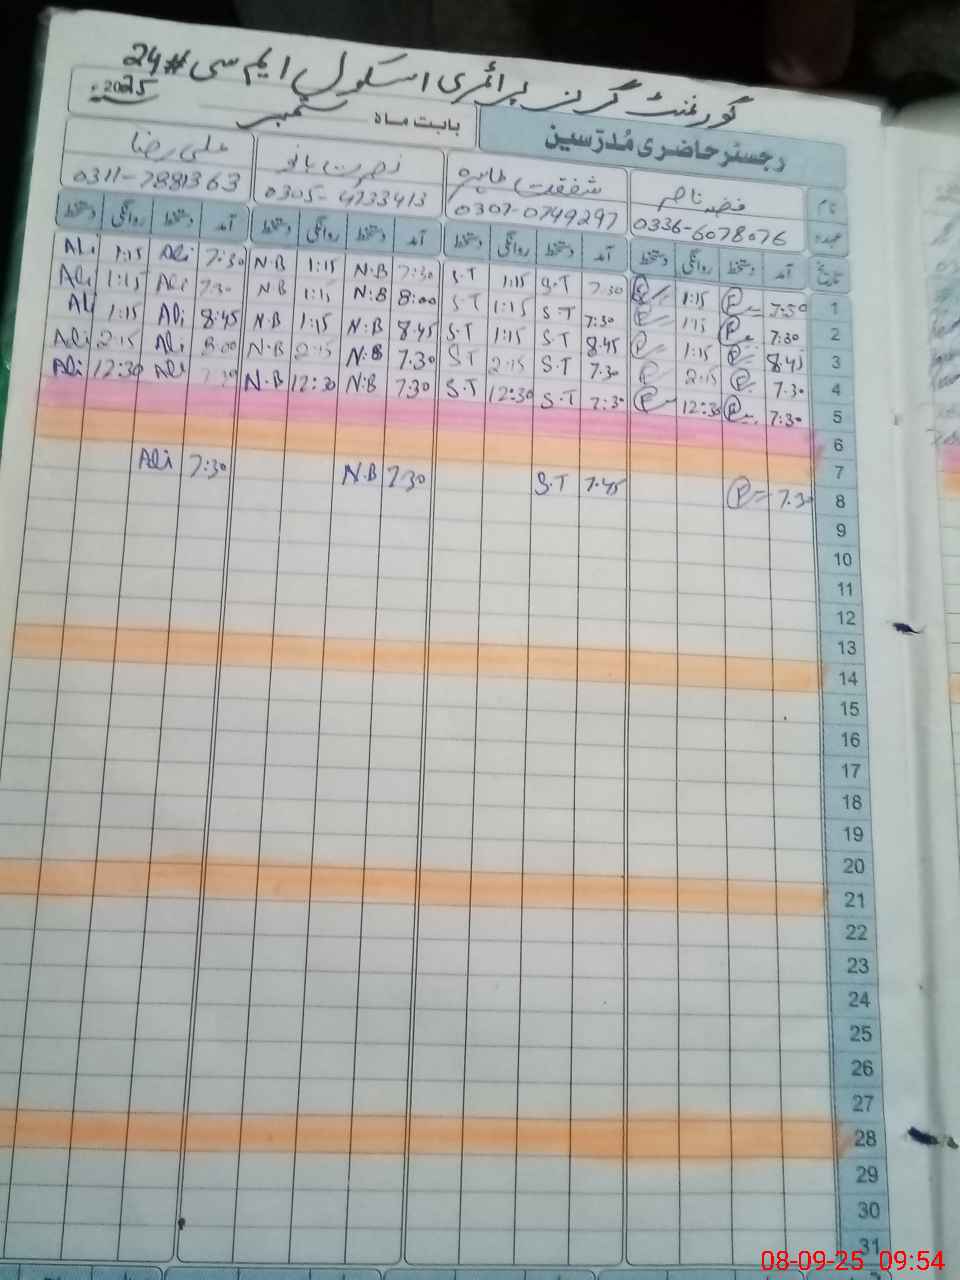 گورنمنٹ گرلز پرائمری اسکول ایم سی #24
رجسٹر حاضری مُدرّسین
بابت ماہ ستمبر 2025ء
نام فضہ ناصر شفقت طاہرہ نصرت بانو علی رضا
عہدہ 0336-6078076 0307-0749297 0305-4733413 0311-7881363
تاریخ آمد دستخط روانگی دستخط آمد دستخط روانگی دستخط آمد دستخط روانگی دستخط آمد دستخط روانگی دستخط
1 7:50 1:15 7:30 S.T 1:15 S.T 7:30 N.B 1:15 N.B 7:30 Ali 1:15 Ali
2 7:30 1:15 7:30 S.T 1:15 S.T 8:00 N.B 1:15 N.B 7:30 Ali 1:15 Ali
3 8:45 1:15 8:45 S.T 1:15 S.T 8:45 N.B 1:15 N.B 8:45 Ali 1:15 Ali
4 7:30 2:15 7:30 S.T 2:15 S.T 7:30 N.B 2:15 N.B 8:00 Ali 2:15 Ali
5 7:30 12:30 7:30 S.T 12:30 S.T 7:30 N.B 12:30 N.B 7:30 Ali 12:30 Ali
6
7
8 7:30 7:45 S.T 7:30 N.B 7:30 Ali
9
10
11
12
13
14
15
16
17
18
19
20
21
22
23
24
25
26
27
28
29
30
31
08-09-25 09:54